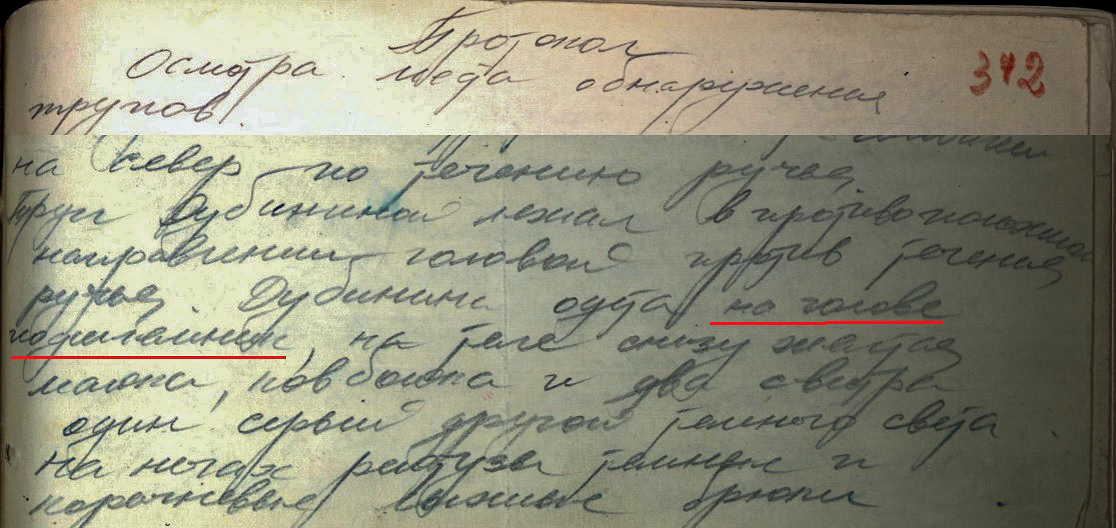 Протокол
Осмотра места обнаружения
312
трупов.
на север по течению ручья
Труп Дубининой лежал в противоположном
направлении головой против течения
ручья. Дубинина одета на голове
подшлемник, на теле снизу желтая
майка, ковбойка и два свитра
один серый другой темного света
На ногах рейтузы темные и
коричневые лыжные брюки